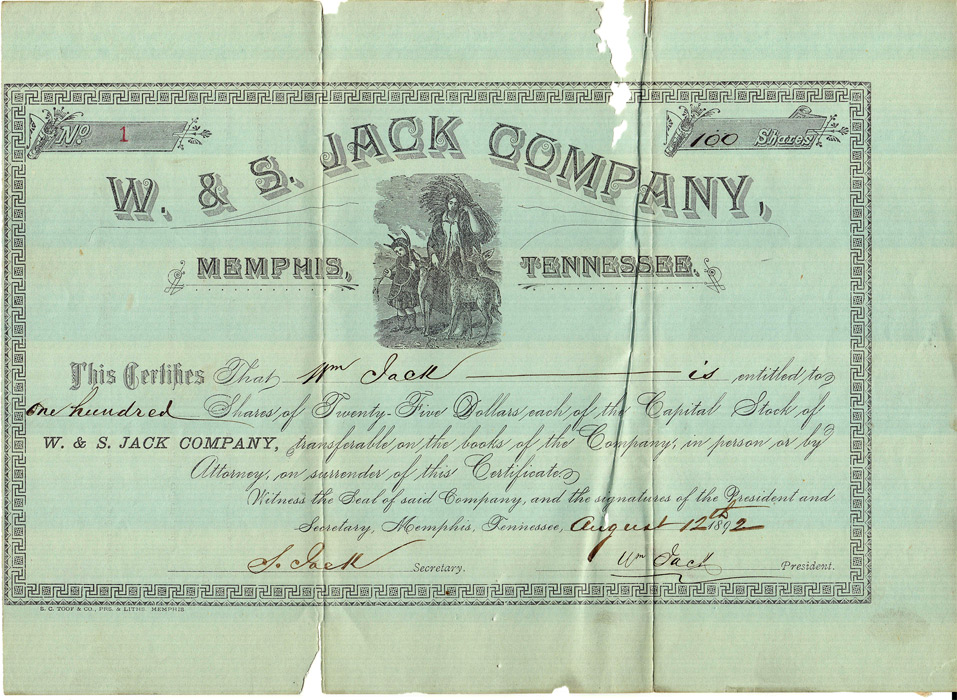 No. 1
100 Shares
W. & S. JACK COMPANY,
MEMPHIS, TENNESSEE.
This Certifies That Wm Jack is entitled to
one hundred Shares of Twenty-Five Dollars each of the Capital Stock of
W. & S. JACK COMPANY, transferable on the books of the Company, in person or by
Attorney, on surrender of this Certificate.
Witness the Seal of said Company, and the signatures of the President and
Secretary, Memphis, Tennessee, August 12th 1892
S. Jack Secretary. Wm Jack President.
S. C. TOOF & CO., PRS. & LITHS. MEMPHIS